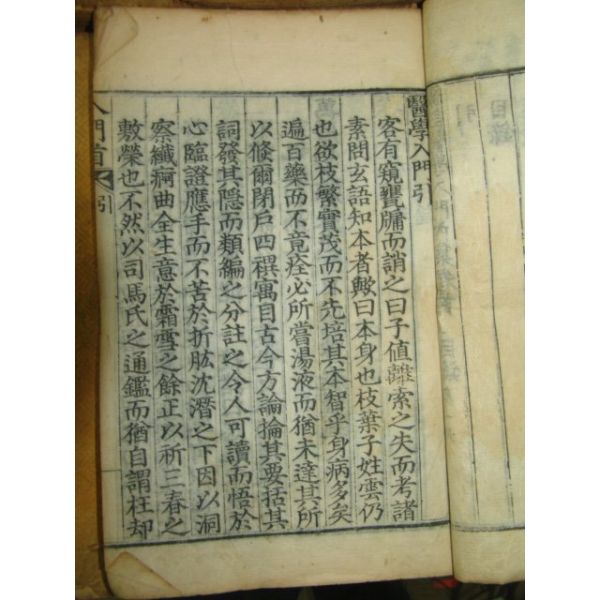 醫學入門引
客有窺甕牖而誚之曰子値離索之失而考諸
素問玄語知本者歟曰本身也枝葉子姓雲仍
也欲枝繁實茂而不先培其本智乎身病多矣
遍百藥而不竟痊必所嘗湯液而猶未達其所
以倐爾閉戶四禩寓目古今方論掄其要括其
詞發其隱而類編之分註之令人可讀而悟於
心臨證應手而不苦於折肱沈潛之下因以洞
察纖痾曲全生意於霜雪之餘正以祈三春之
敷榮也不然以司馬氏之通鑑而猶自謂枉却
入門首 引